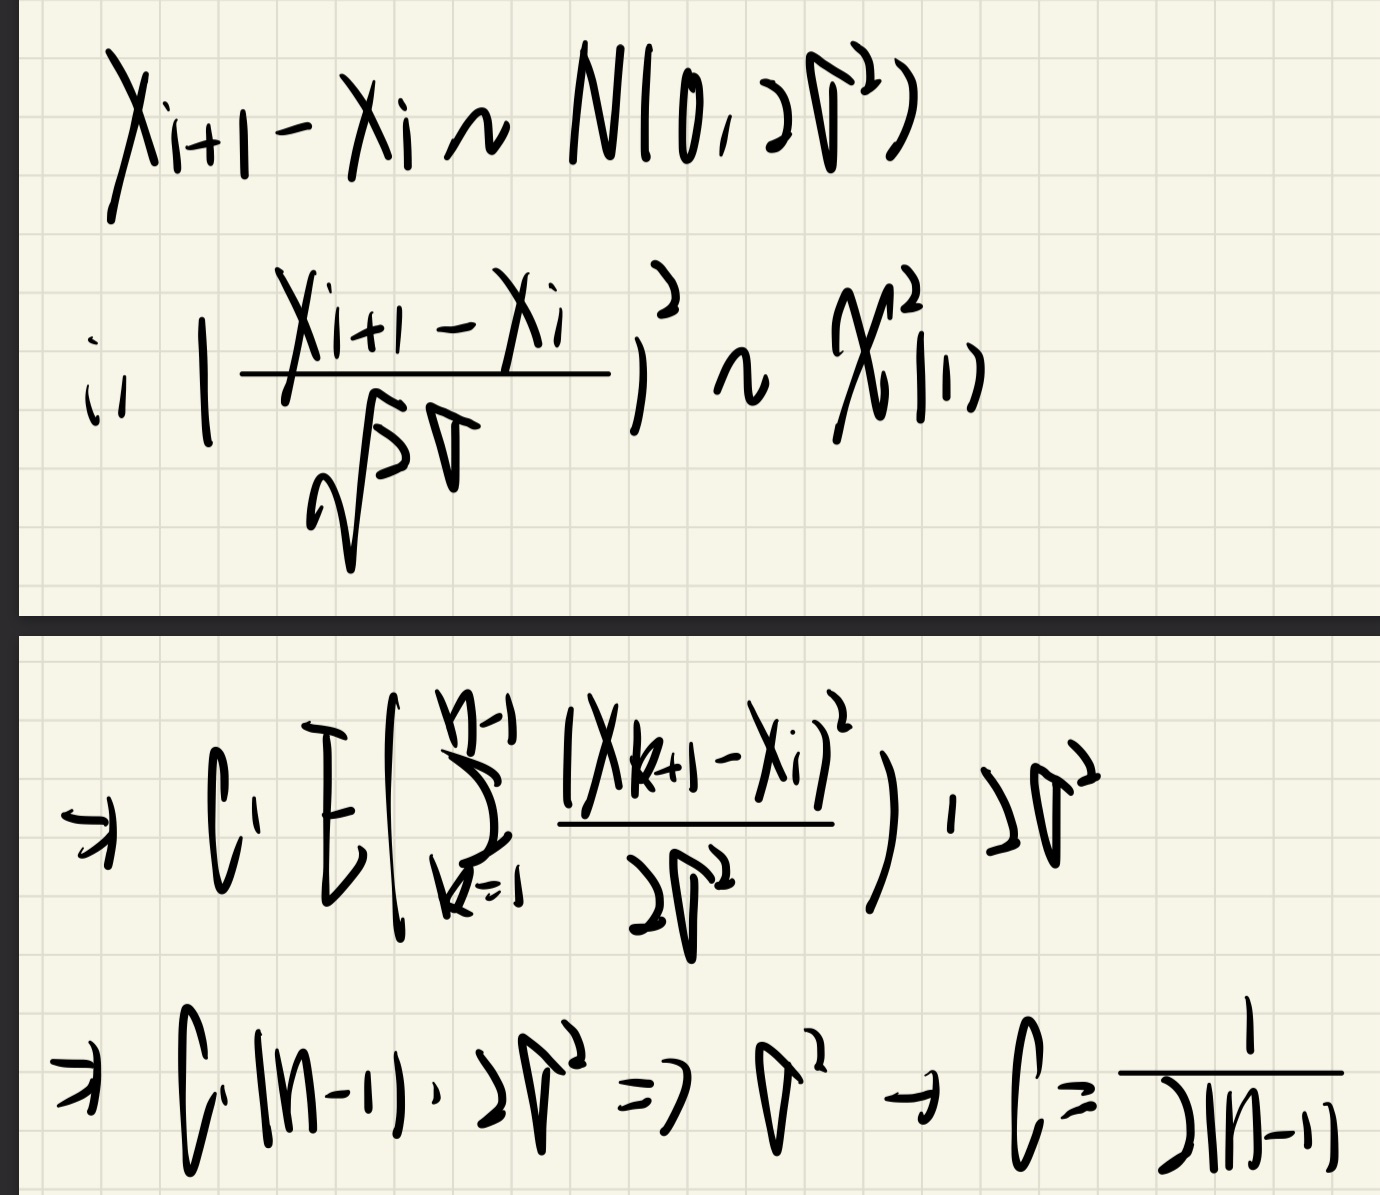 X_{i+1} - X_i ~ N(0, 2σ²)
∴ ((X_{i+1} - X_i)/(√2σ))² ~ χ²(1)
→ C · E(∑_{k=1}^{n-1} (X_{k+1} - X_i)²/(2σ²)) · 2σ²
→ C · (n-1) · 2σ² ⇒ σ² → C = 1/(2(n-1))